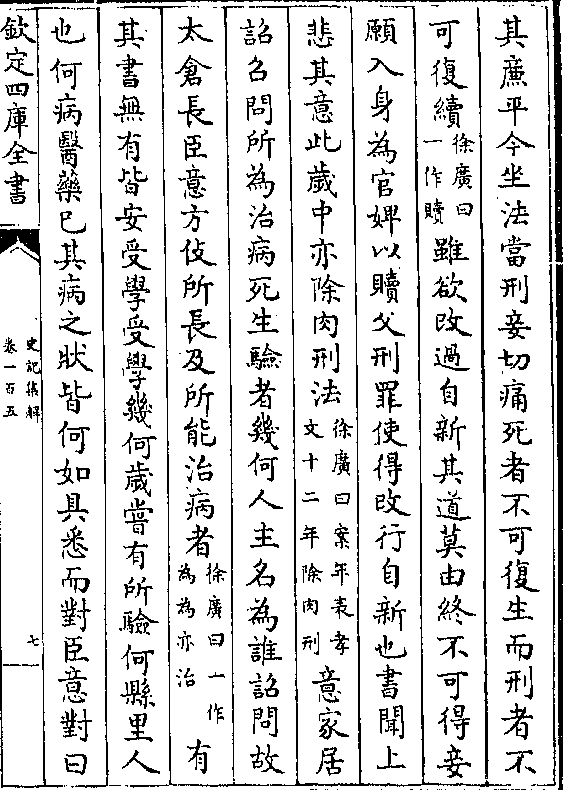 其廉平今坐法當刑妾切痛死者不可復生而刑者不
可復續徐廣曰一作贖雖欲改過自新其道莫由終不可得妾
願入身為官婢以贖父刑罪使得改行自新也書聞上
悲其意此歲中亦除肉刑法徐廣曰案年表孝文十二年除肉刑意家居
詔召問所為治病死生驗者幾何人主名為誰詔問故
太倉長臣意方伎所長及所能治病者徐廣曰一作為為亦治有
其書無有皆安受學受學幾何歲嘗有所驗何縣里人
也何病醫藥已其病之狀皆何如具悉而對臣意對曰
欽定四庫全書
史記集解
卷一百五
七